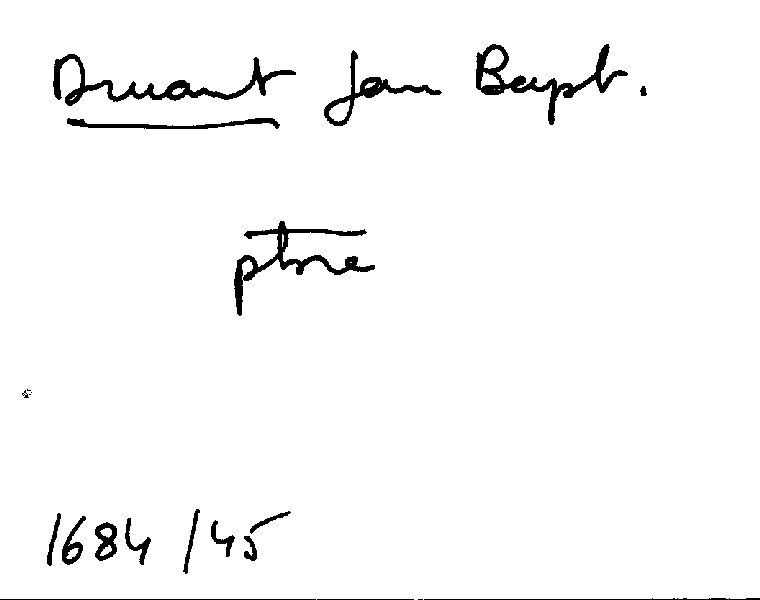 Druant Jan Bapt.
ptre
1684/45